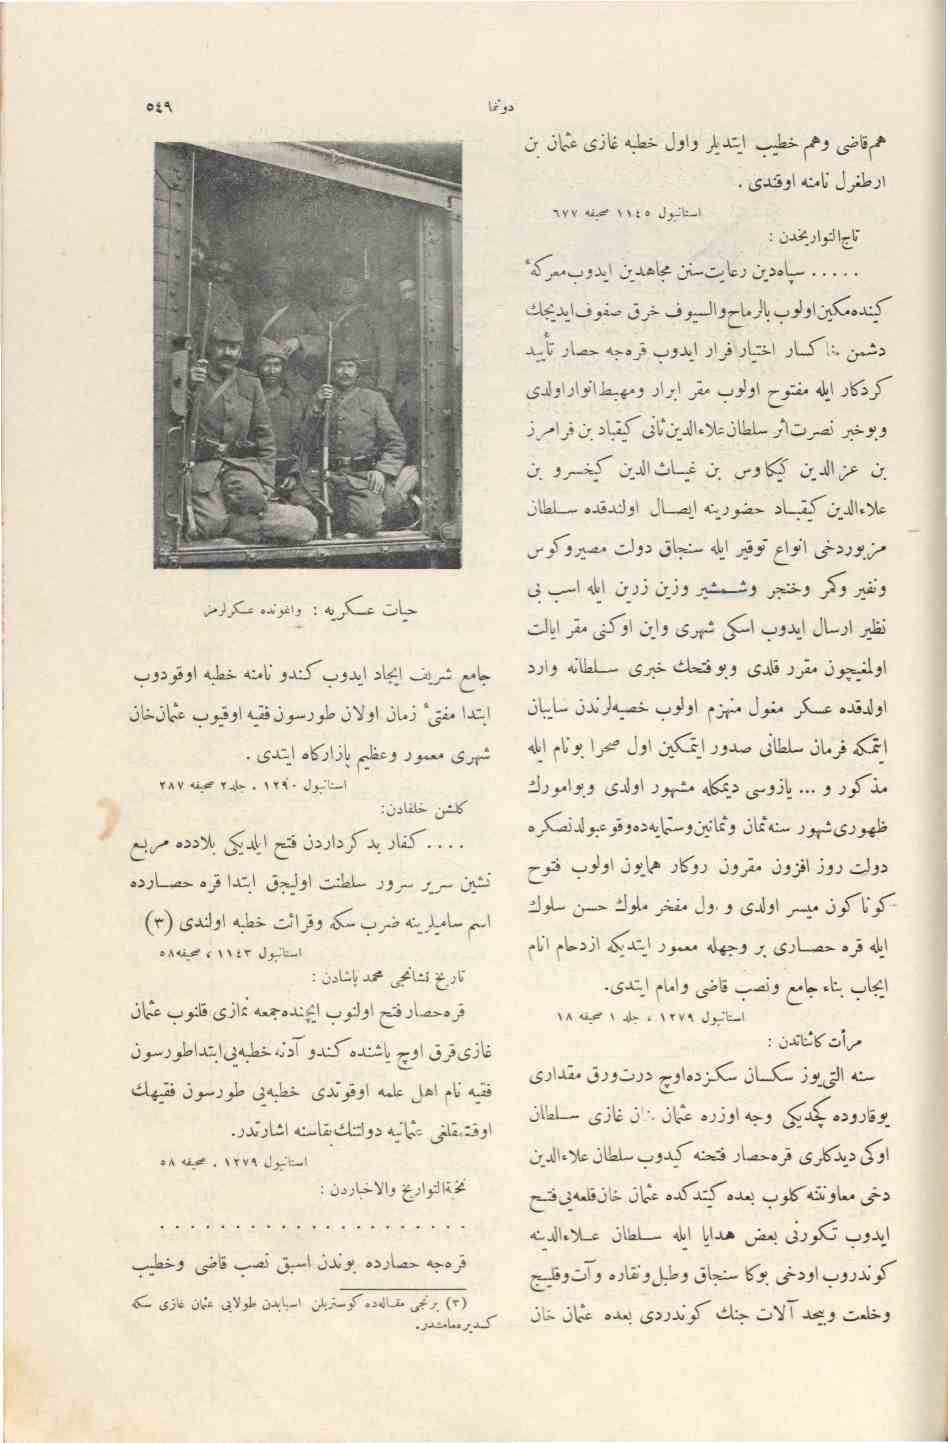 دوننما
٥٤٩
هم قاضی وهم خطیب ایتدیلر واول خطبه غازی عثمان بن
ارطغرل نامنه اوقندی .
استانبول ١١٤٥ صحیفه ٦٧٧
تاج‌التواریخدن :
..... سپاه‌دین رعایت‌سنن مجاهدین ایدوب معرکهٔ
کینده‌مکین اولوب بالرماح والسیوف خرق صفوف ایدیجك
دشمن خاکسار اختیار فرار ایدوب قره‌جه حصار تأیید
کردکار ایله مفتوح اولوب مقر ابرار ومهبط انوار اولدی
وبوخبر نصرت‌اثر سلطان علاءالدین ثانی کیقباد بن فرامرز
بن عزالدین کیکاوس بن غیاث الدین کیخسرو بن
علاءالدین کیقباد حضورینه ایصال اولندقده سلطان
مزبوردخی انواع توقیر ایله سنجاق دولت مصیر وکوس
ونفیر وکمر وخنجر وشمشیر وزین زرین ایله اسب بی
نظیر ارسال ایدوب اسکی شهری واین اوکنی مقر ایالت
اولمغیچون مقرر قلدی وبوفتحك خبری سلطانه وارد
اولدقده عسکر مغول منهزم اولوب خصیه‌لرندن سایبان
ایتمکه فرمان سلطانی صدور ایتمکین اول صحرا بونام ایله
مذکور و ... یازوسی دیمکله مشهور اولدی وبوامورك
ظهوری شهور سنه ثمان وثمانین وستمایه‌ده وقوعبولدنصکره
دولت روز افزون مقرون روکار همایون اولوب فتوح
کوناکون میسر اولدی و اول مفخر ملوك حسن سلوك
ایله قره حصاری بر وجهله معمور ایتدیکه ازدحام انام
ایجاب بناء جامع ونصب قاضی وامام ایتدی.
استانبول ١٢٧٩ ، جلد ١ صحیفه ١٨
مرأت کائناتدن :
سنه التی‌یوز سکسان سکزده‌اوچ درت‌ورق مقداری
یوقاروده کچدیکی وجه اوزره عثمان خان غازی سلطان
اوکی دیدکاری قره‌حصار فتحنه کیدوب سلطان علاءالدین
دخی معاونتنه کلوب بعده کیتدکده عثمان خان قلعه‌یی فتح
ایدوب تکورنی بعض هدایا ایله سلطان علاءالدینه
کوندروب اودخی بوکا سنجاق وطبل‌ونقاره وآت‌وقلیج
وخلعت وبیحد آلات جنك کوندردی بعده عثمان خان
حیات عسکریه : واغونده عسکرلرمز
جامع شریف ایجاد ایدوب کندو نامنه خطبه اوقودوب
ابتدا مفتیٔ زمان اولان طورسون فقیه اوقیوب عثمان‌خان
شهری معمور وعظیم بازارکاه ایتدی .
استانبول ١٢٩٠ ، جلد٢ صحیفه ٢٨٧
کلشن خلفادن:
.... کفار بدکرداردن فتح ایلدیکی بلادده مربع
نشین سریر سرور سلطنت اولیجق ابتدا قره حصارده
اسم سامیلرینه ضرب سکه وقرائت خطبه اولندی (٣)
استانبول ١١٤٣ ، صحیفه ٥٨
تاریخ نشانجی محمد پاشادن :
قره‌حصار فتح اولنوب ایچنده‌جمعه نمازی قلنوب عثمان
غازی‌قرق اوچ یاشنده کندو آدنه خطبه‌یی ابتداطورسون
فقیه نام اهل علمه اوقوتدی خطبه‌یی طورسون فقیهك
اوقتمقلغی عثمانیه دولتنك بقاسنه اشارتدر.
استانبول ١٢٧٩ ، صحیفه ٥٨
نخبةالتواریخ والاخباردن :
. . . . . . . . . . . . . . . . . . . .
قره‌جه حصارده بوندن اسبق نصب قاضی وخطیب
(٣) برنجی مقاله‌ده کوستریلن اسبابدن طولایی عثمان غازی سکه
کسدیرمه‌مامشدر.